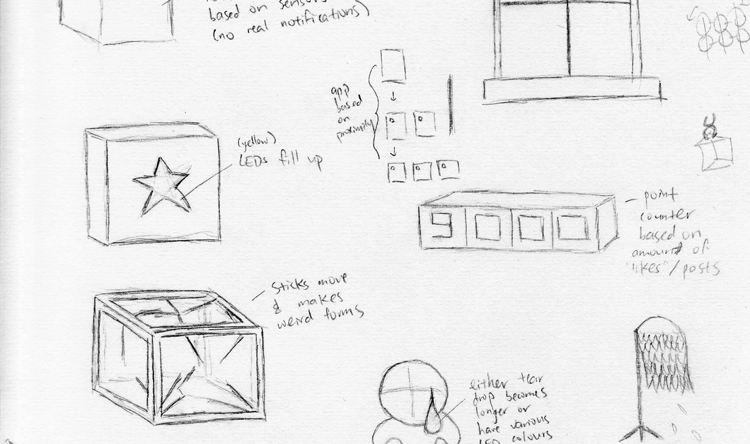 based on sensors
(no real notifications)
app
based
on
proximity
(yellow)
LEDs fill up
9000
point
counter
based on
amount of
"likes"/posts
Sticks move
& makes
weird forms
either tear
drop becomes
longer or
have various
LED colours